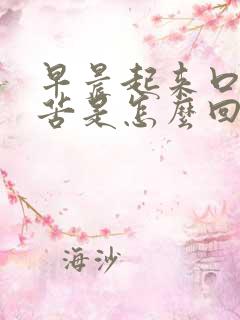 早晨起来口
苦是怎麼回
海沙